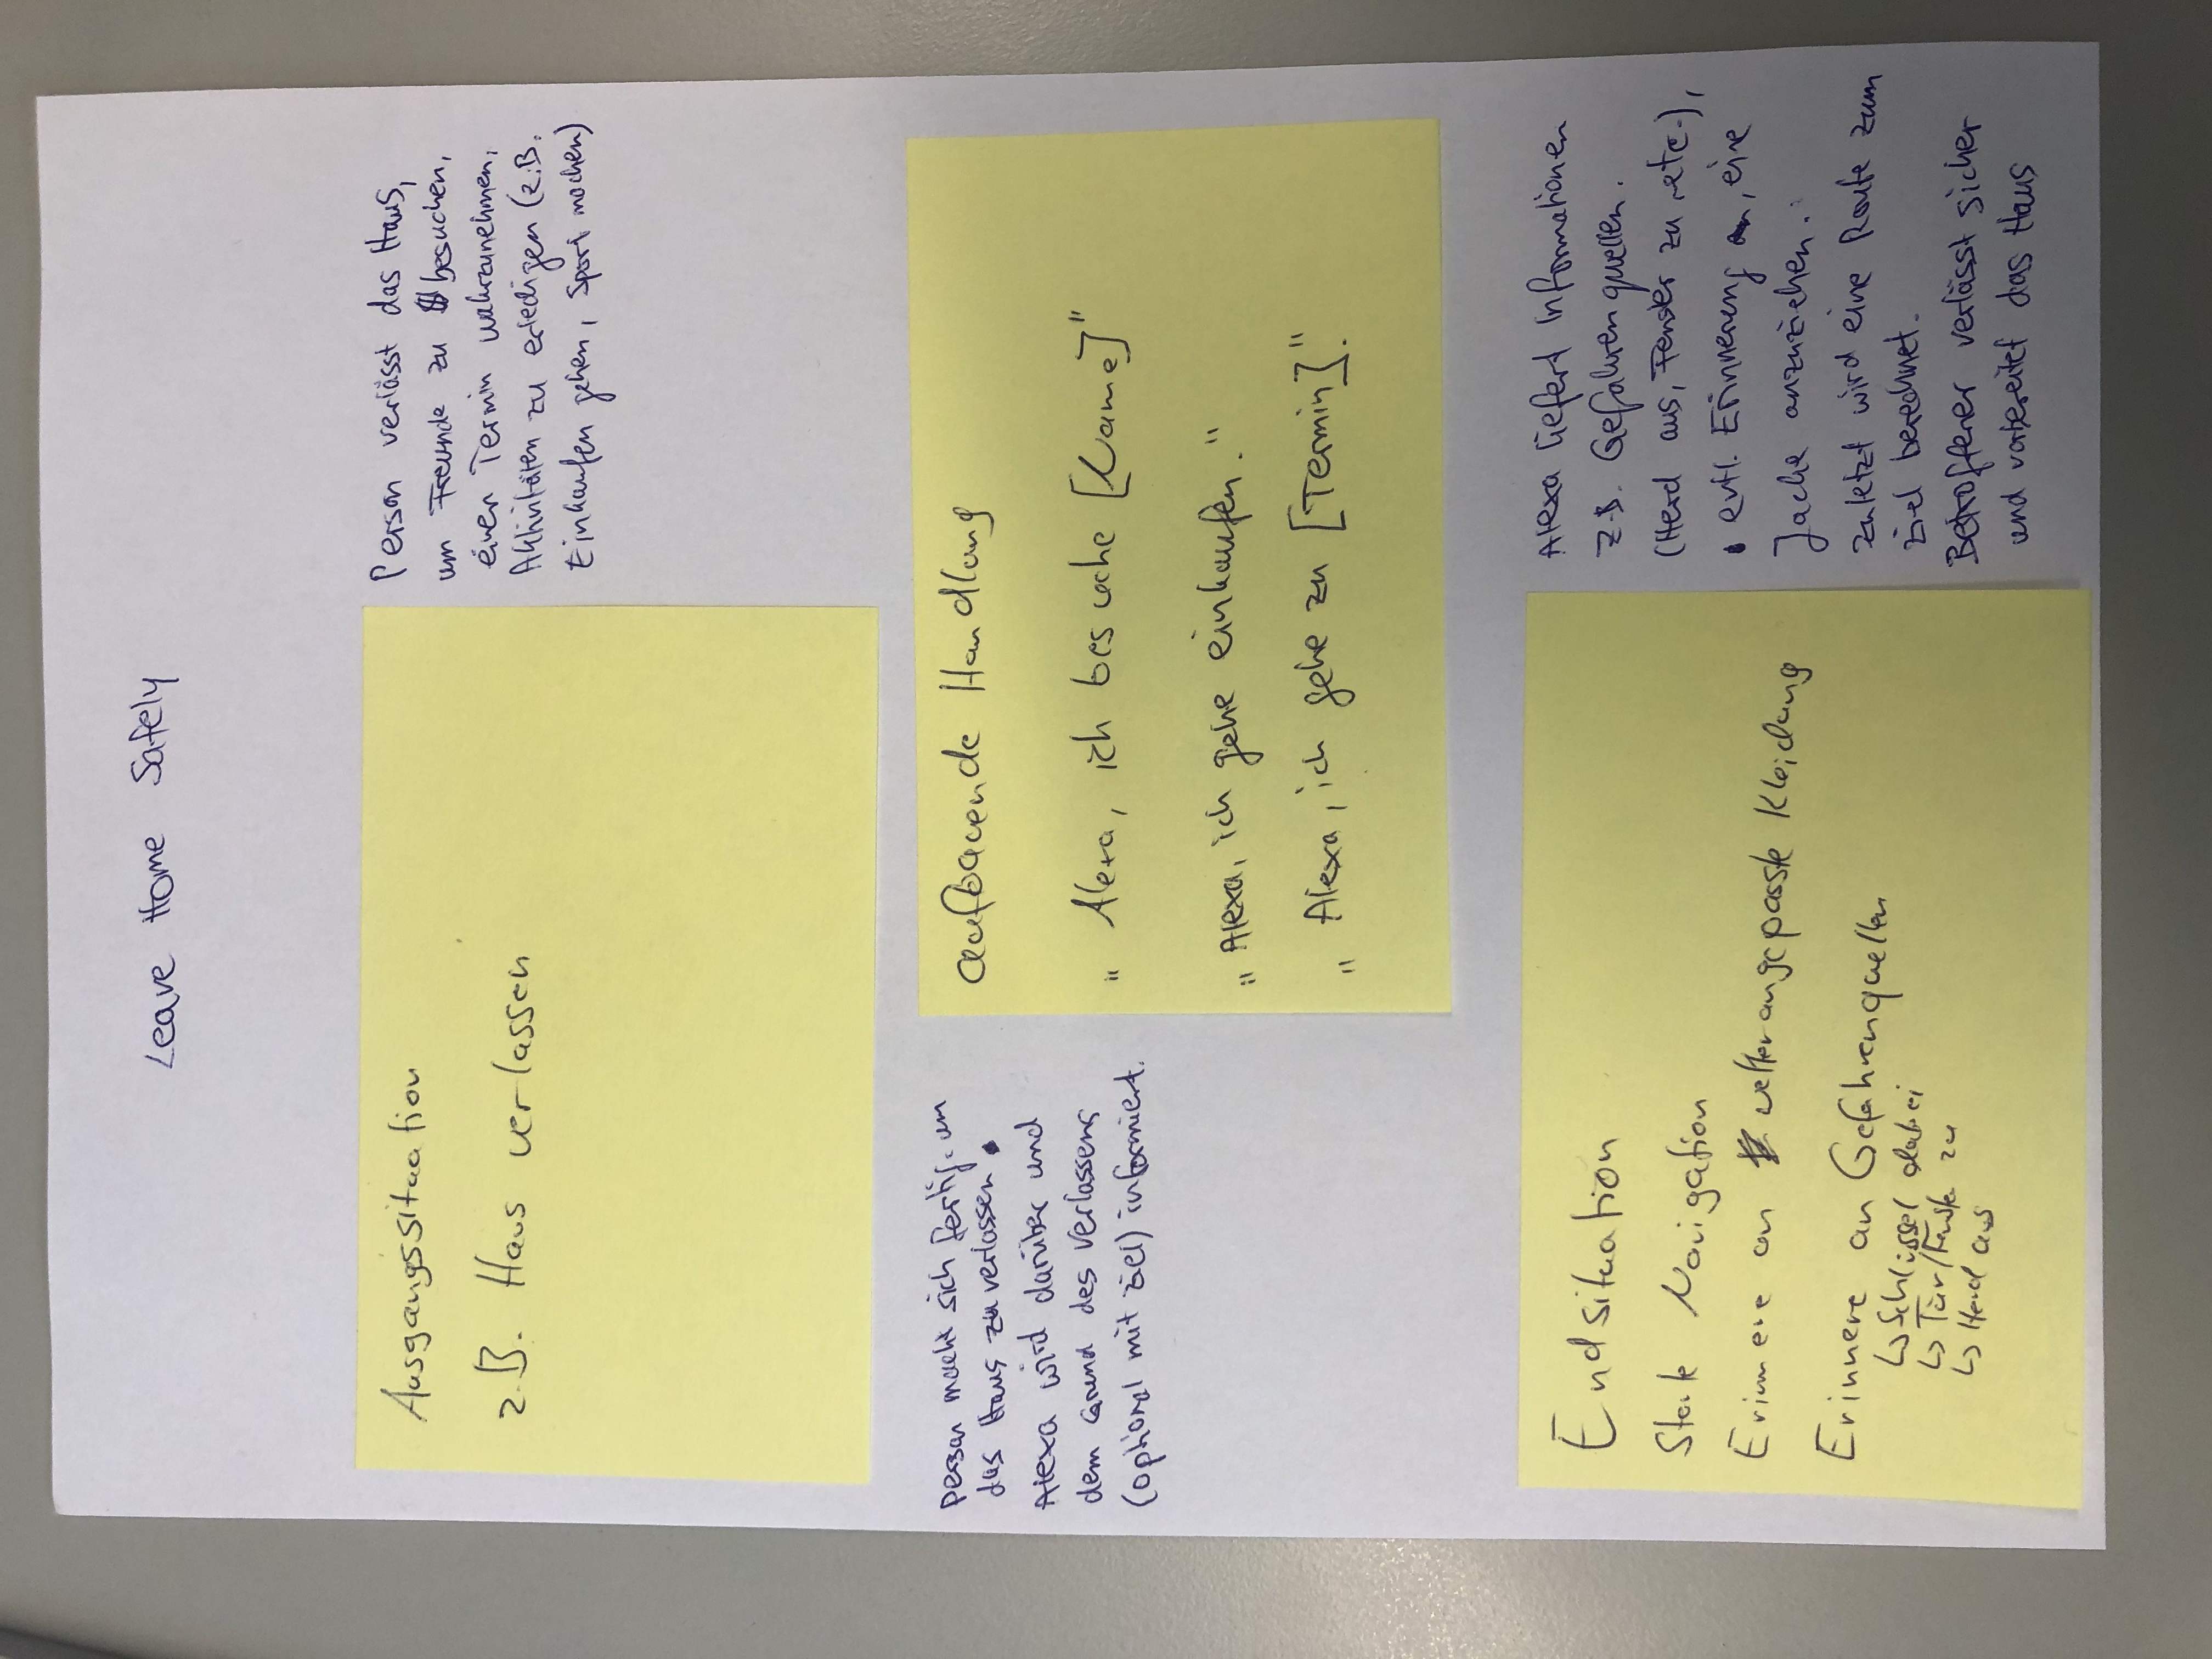 Leave Home Safely
Ausgangssituation
z.B. Haus verlassen
Person verlässt das Haus,
um Freunde zu besuchen,
einen Termin wahrzunehmen,
Aktivitäten zu erledigen (z.B.
Einkaufen gehen, Sport machen)
Person macht sich fertig, um
das Haus zu verlassen.
Alexa wird darüber und
dem Grund des Verlassens
(optional mit Ziel) informiert.
aufbauende Handlung
„Alexa, ich besuche [Name]"
„Alexa, ich gehe einkaufen."
„Alexa, ich gehe zu [Termin]."
Endsituation
Starte Navigation
Erinnere an wetterangepasste Kleidung
Erinnere an Gefahrenquellen
↳ Schlüssel dabei
↳ Tür/Fenster zu
↳ Herd aus
Alexa liefert Informationen
z.B. Gefahrenquellen.
(Herd aus, Fenster zu, etc.),
evtl. Erinnerung, eine
Jacke anzuziehen.
Zuletzt wird eine Route zum
Ziel berechnet.
Betroffener verlässt sicher
und vorbereitet das Haus